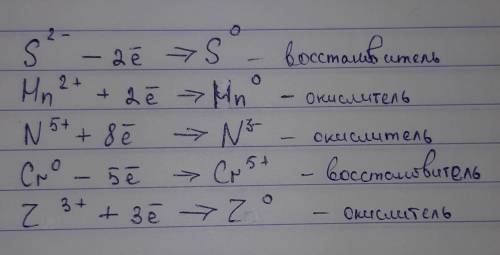 S²⁻ − 2ē → S⁰ − восстановитель
Mn²⁺ + 2ē → Mn⁰ − окислитель
N⁵⁺ + 8ē → N³⁻ − окислитель
Cr⁰ − 5ē → Cr⁵⁺ − восстановитель
Z³⁺ + 3ē → Z⁰ − окислитель